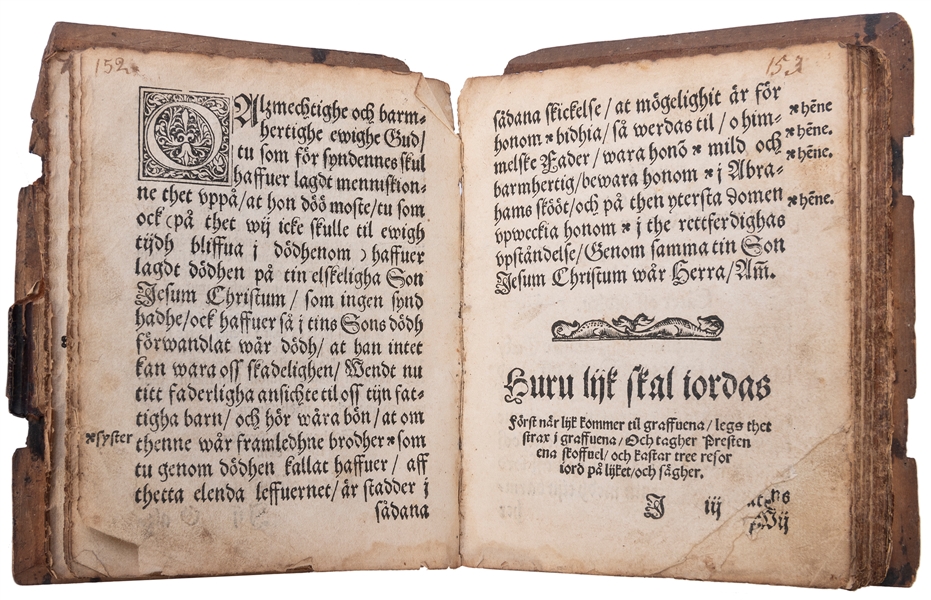 152
O Alzmechtighe och barm-
hertighe ewighe Gud/
tu som för syndennes skul
haffuer lagdt menniskion-
ne thet vppå/at hon döö moste/tu som
ock (på thet wij icke skulle til ewigh
tijdh bliffua j dödhenom) haffuer
lagdt dödhen på tin elskeligha Son
Jesum Christum/ som ingen synd
hadhe/ock haffuer så j tins Sons dödh
förwandlat wår dödh/ at han intet
kan wara oss skadelighen/ Wendt nu
titt faderligha ansichte til oss tijn fat-
tigha barn/ och hör wåra bön/at om
⁎syster thenne wår framledhne brodher⁎som
tu genom dödhen kallat haffuer/ aff
thetta elenda leffuernet/är stadder j
sådana
153
sådana skickelse/at mögelighit är för
honom ⁎ bidhia/så werdas til/o him- ⁎ hēne
melske Fader/wara honō ⁎ mild och ⁎ hēne.
barmhertig/bewara honom ⁎ j Abra- ⁎ hēne.
hams skööt/och på then ytersta domen
vpweckia honom ⁎ j the rettferdighas ⁎ hēne.
vpståndelse/Genom samma tin Son
Jesum Christum wår Herra/Am̄.
Huru lijk skal iordas
Först när lijk kommer til graffuena/ legs thet
strax j graffuena/Och tagher Presten
ena skoffuel/och kastar tree resor
iord på lijket/och sägher.
J iij
Wij